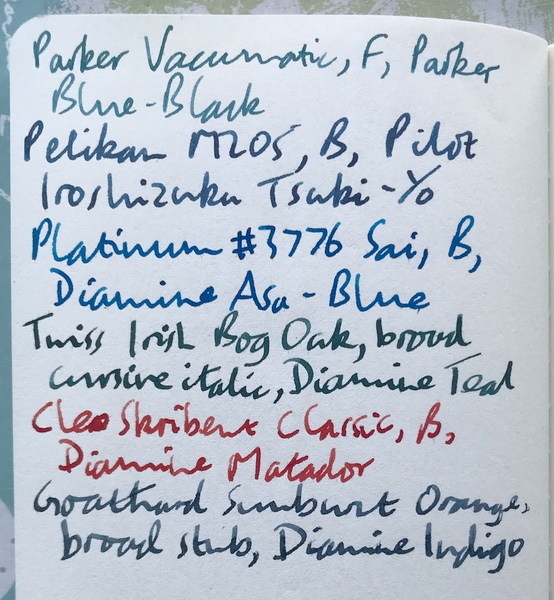 Parker Vacumatic, F, Parker
Blue-Black
Pelikan M205, B, Pilot
Iroshizuku Tsuki-Yo
Platinum #3776 Sai, B,
Diamine Asa-Blue
Twiss Irish Bog Oak, broad
cursive italic, Diamine Teal
Cleo Skribent Classic, B,
Diamine Matador
Goathand Sunburst Orange,
broad stub, Diamine Indigo